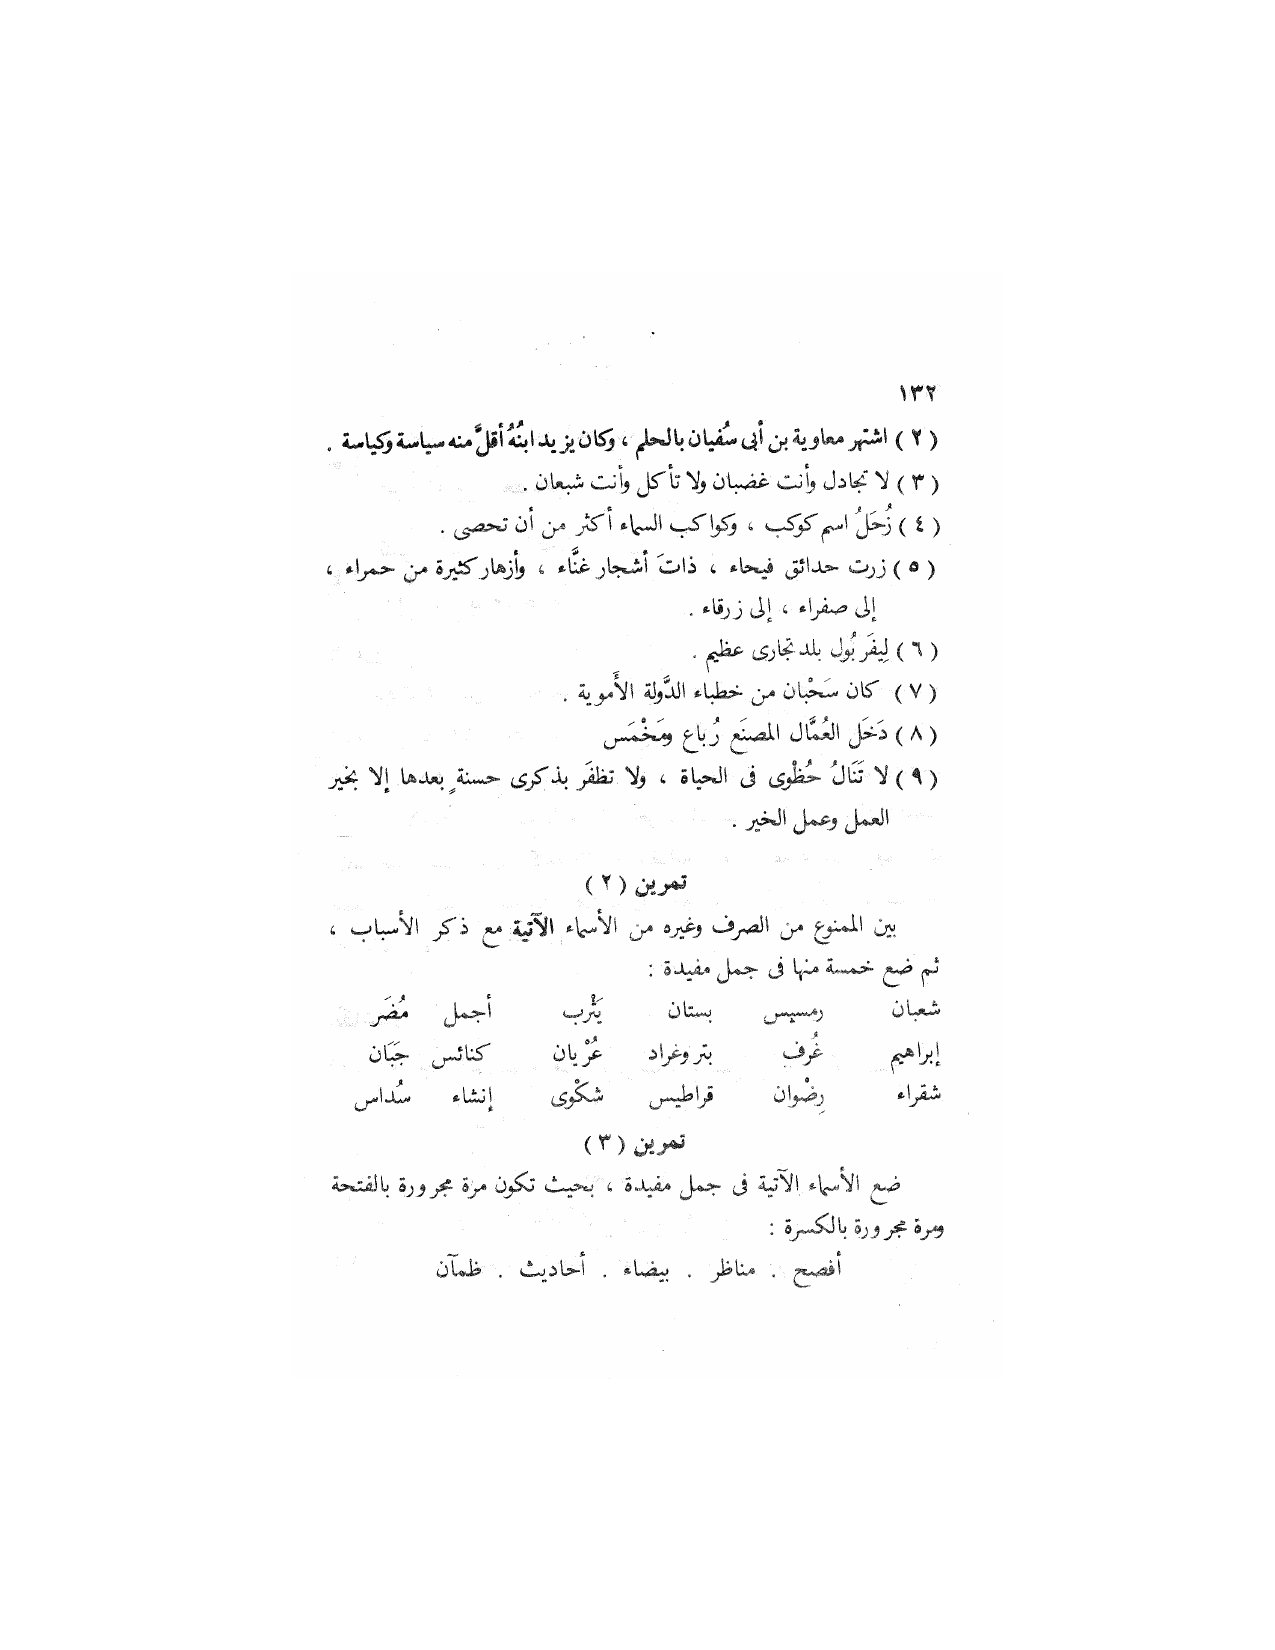 ١٣٢
( ٢ ) اشتهر معاوية بن أبى سُفيان بالحلم ، وكان يزيد ابنُهُ أقلَّ منه سياسة وكياسة .
( ٣ ) لا تجادل وأنت غضبان ولا تأكل وأنت شبعان .
( ٤ ) زُحَلُ اسم كوكب ، وكواكب السماء أكثر من أن تحصى .
( ٥ ) زرت حدائق فيحاء ، ذاتَ أشجار غنَّاء ، وأزهار كثيرة من حمراء ،
إلى صفراء ، إلى زرقاء .
( ٦ ) لِيفَربُول بلد تجارى عظيم .
( ٧ ) كان سَحْبان من خطباء الدَّولة الأَموية .
( ٨ ) دَخَل العُمَّال المصنَع رُباع ومَخْمَس
( ٩ ) لا تَنَالُ حُظْوى فى الحياة ، ولا تظفَر بذكرى حسنةٍ بعدها إلا بخير
العمل وعمل الخير .
تمرين ( ٢ )
بين الممنوع من الصرف وغيره من الأسماء الآتية مع ذكر الأسباب ،
ثم ضع خمسة منها فى جمل مفيدة :
شعبان رمسيس بستان يَثْرب أجمل مُضَر
إبراهيم غُرف بتروغراد عُرْيان كنائس جَبَان
شقراء رِضْوان قراطيس شكْوى إنشاء سُداس
تمرين ( ٣ )
ضع الأسماء الآتية فى جمل مفيدة ، بحيث تكون مرة مجرورة بالفتحة
ومرة مجرورة بالكسرة :
أفصح . مناظر . بيضاء . أحاديث . ظمآن